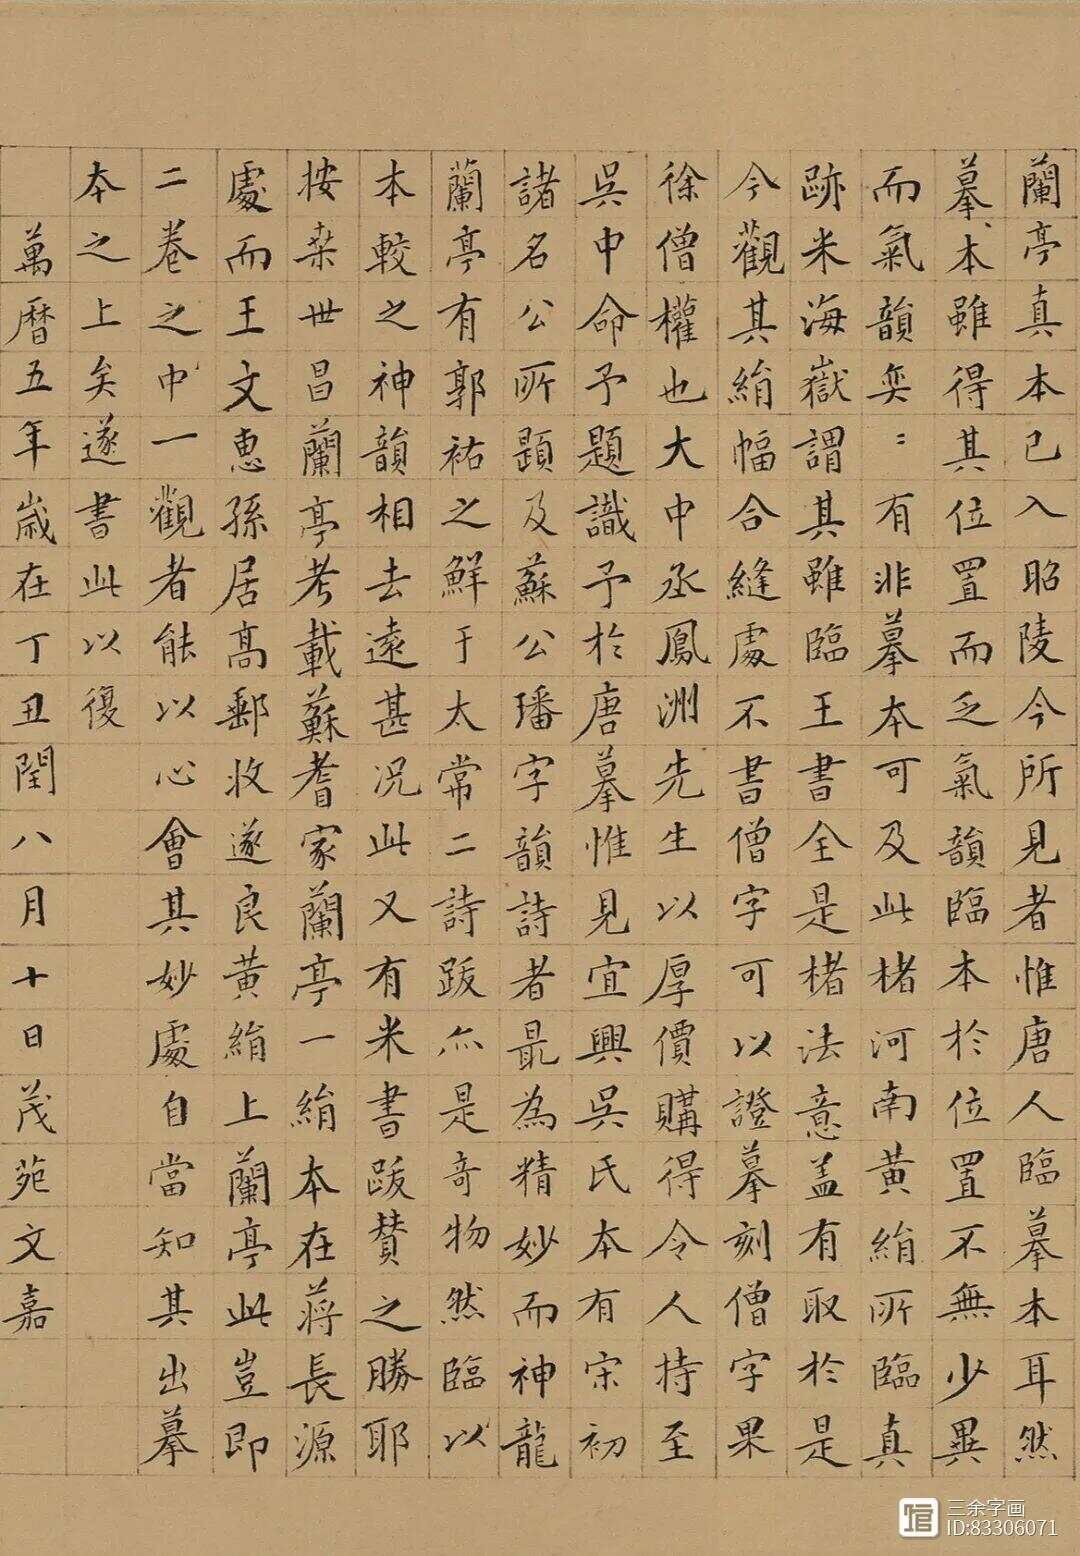 蘭亭真本已入昭陵今所見者惟唐人臨摹本耳然
摹本雖得其位置而乏氣韻臨本於位置不無少異
而氣韻奕:有非摹本可及此楮河南黄絹所臨真
跡米海嶽謂其雖臨王書全是楮法意盖有取於是
今觀其絹幅合縫處不書僧字可以證摹刻僧字果
徐僧權也大中丞鳳洲先生以厚價購得令人持至
吳中命予題識予於唐摹惟見宜興吳氏本有宋初
諸名公所題及蘇公璠字韻詩者最為精妙而神龍
蘭亭有郭祐之鮮于太常二詩跋亦是奇物然臨以
本較之神韻相去遠甚况此又有米書跋贊之勝耶
按桒世昌蘭亭考載蘇耆家蘭亭一絹本在蔣長源
處而王文惠孫居高郵收遂良黄絹上蘭亭此豈即
二卷之中一觀者能以心會其妙處自當知其出摹
本之上矣遂書此以復
萬曆五年歲在丁丑閏八月十日茂苑文嘉
三余字画
ID:83306071